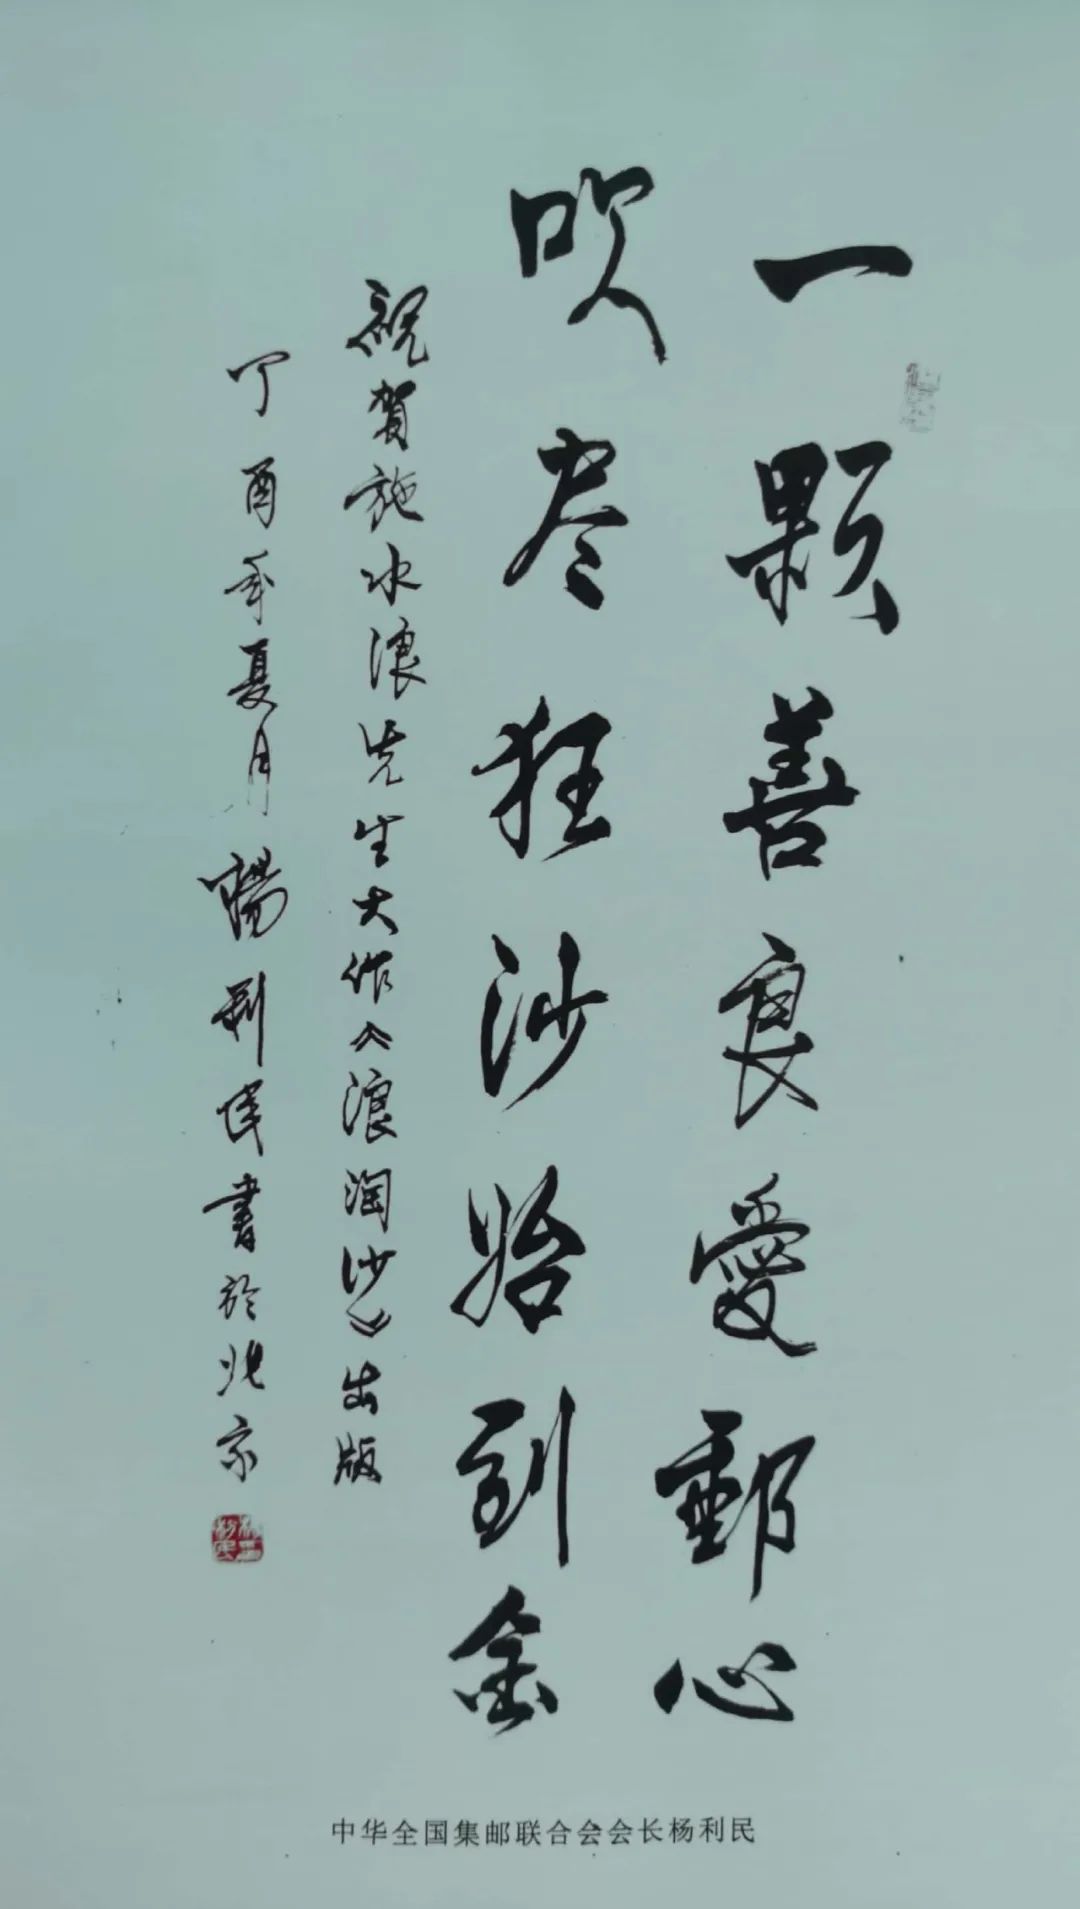 一颗善良愛郵心
吹尽狂沙始到金
祝贺施水浪先生大作《浪淘沙》出版
丁酉年夏月楊利民書於北京
中华全国集邮联合会会长杨利民